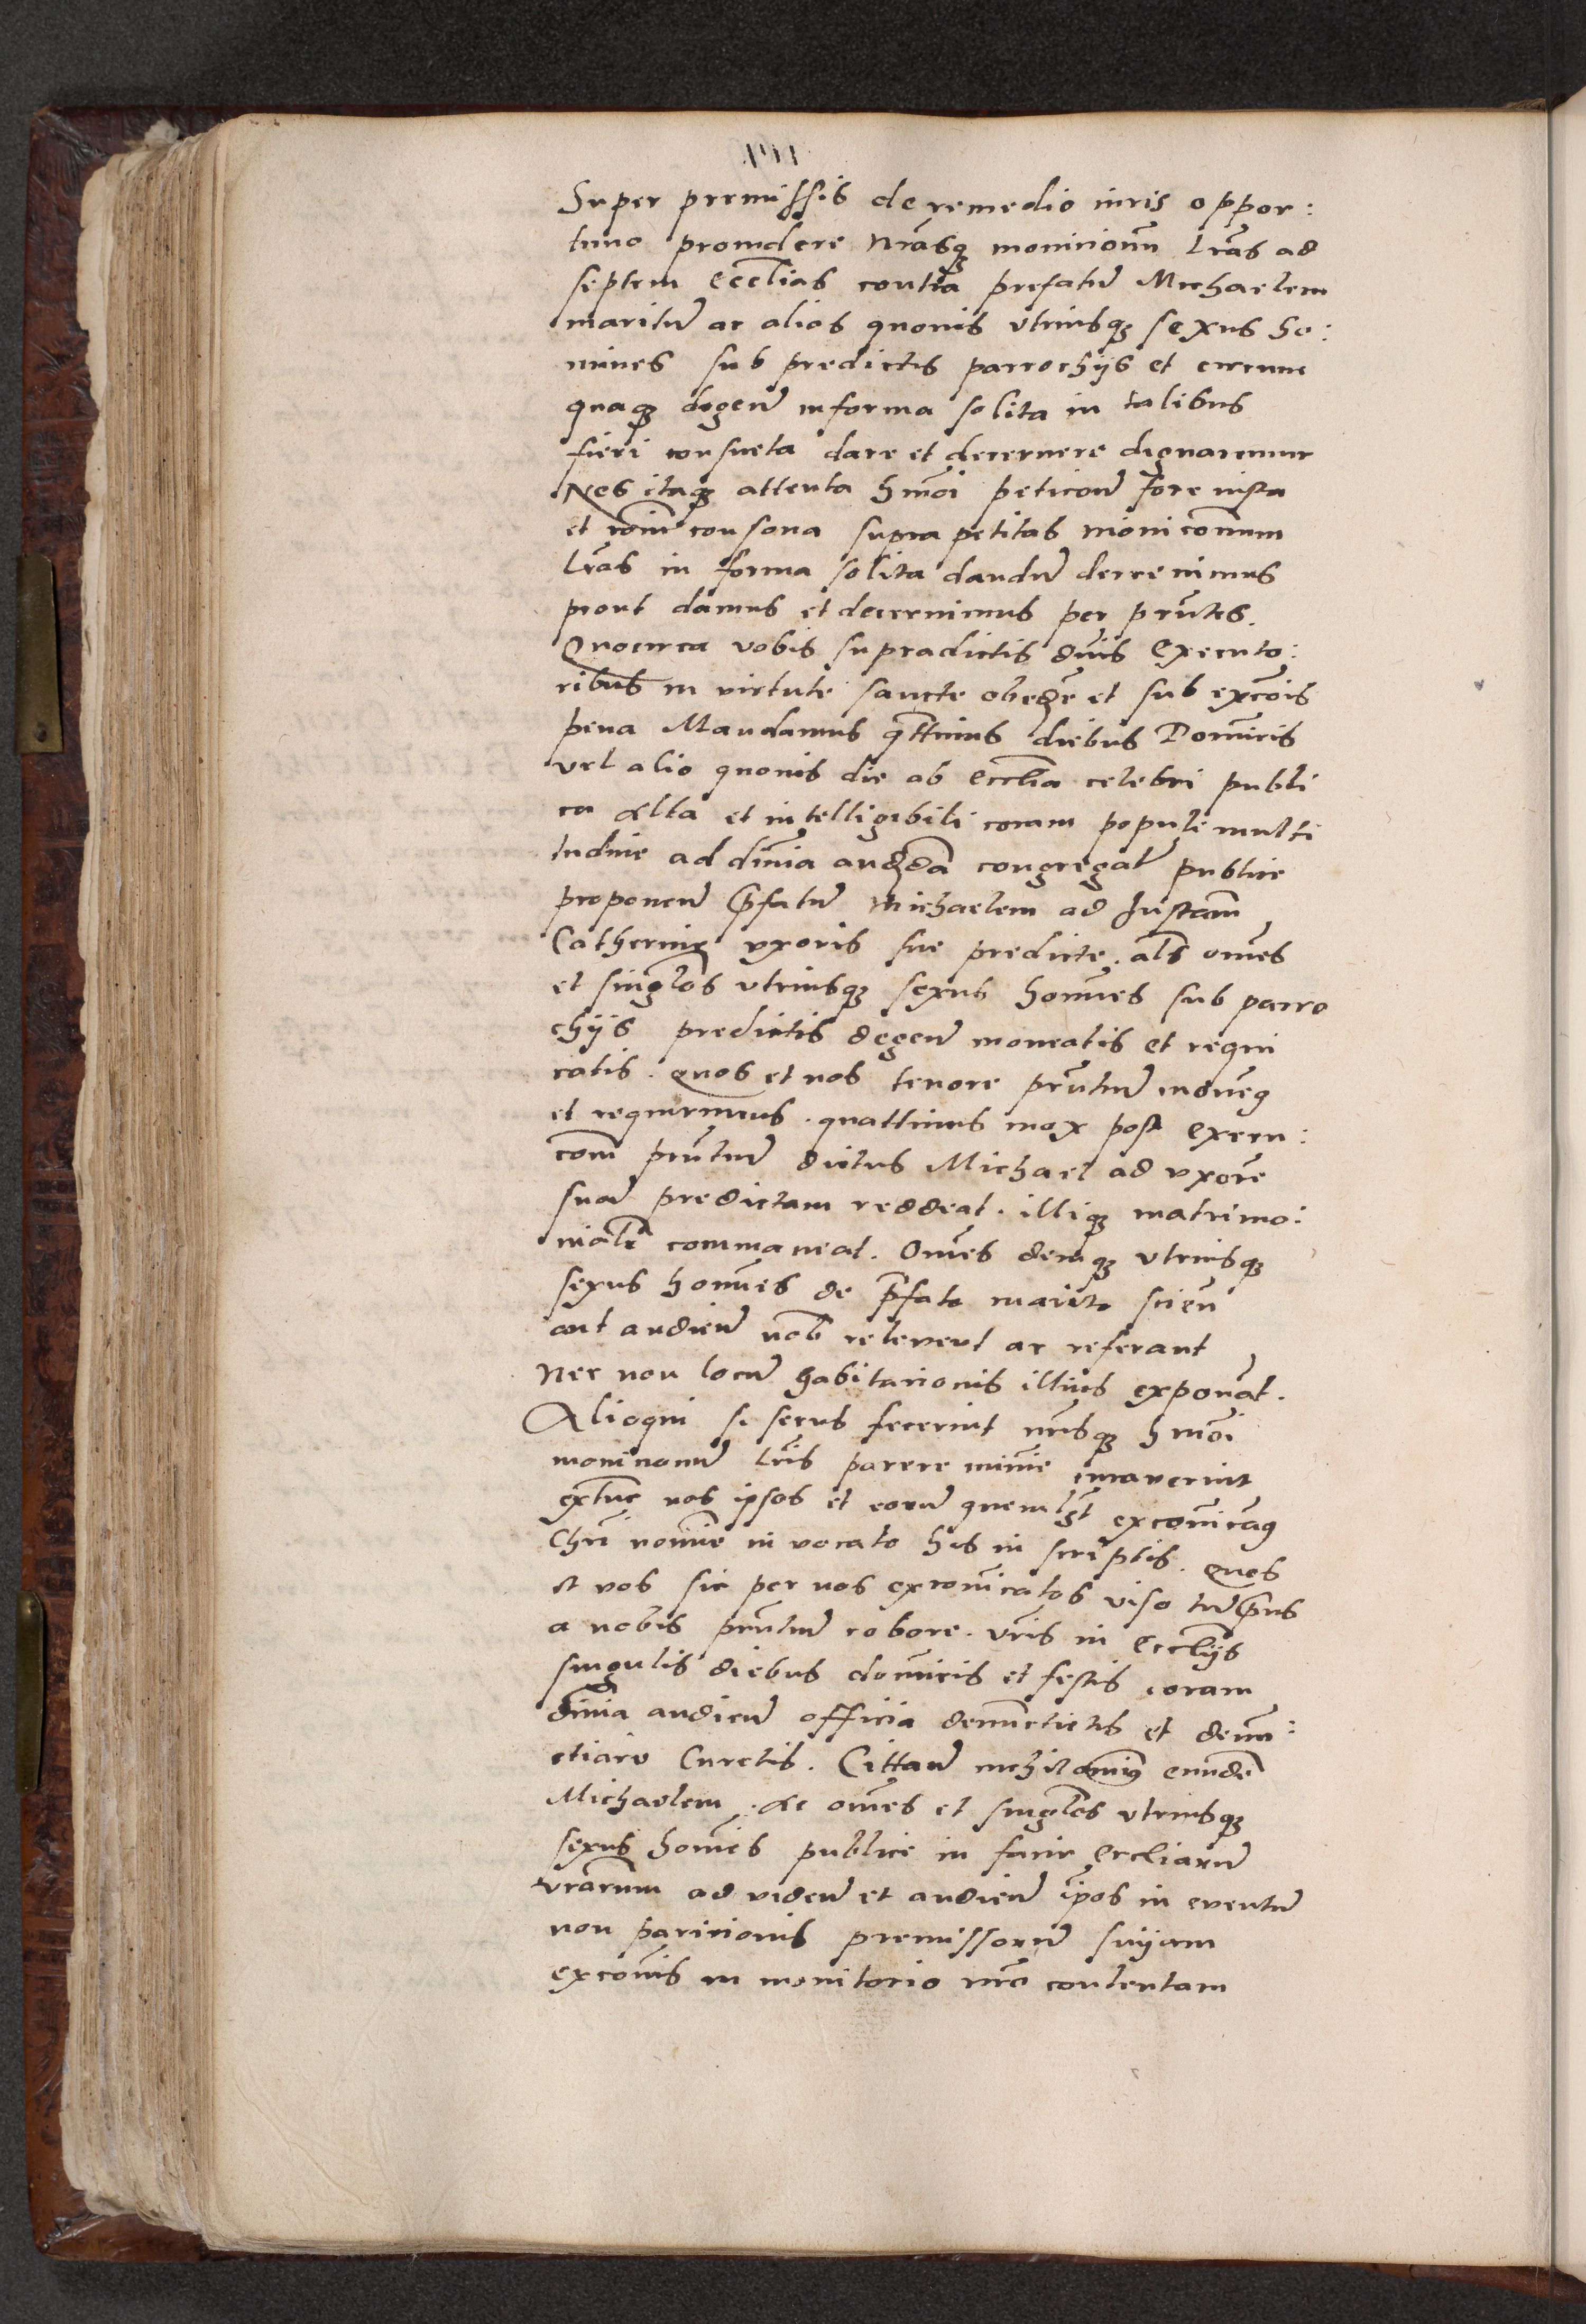 Super premissis de remedio iuris oppor:
tuno prouidere nr̃asqꝫ monicionũ lr̃as ad
septem eccl̃ias contra prefatũ Michaelem
maritũ ac alios quouis vtriusqꝫ sexus ho:
mines sub predictis parrochijs et circum
quaqꝫ degeñ in forma solita in talibus
fieri consueta dare et decernere dignaremur
Nos itaqꝫ attenta hm̃oi peticoñe fore iusta
et roñi consona supra petitas monicoñum
lr̃as in forma solita dandũ decreuimus
prout damus et decernimus per pñtes.
Quocirca vobis supradictis dñis Executo:
ribus in virtute sancte obedẽ et sub excõis
pena Mandamus q̃ttinus diebus Domĩcis
vel alio quouis die ab eccl̃ia celebri publi
ca alta et intelligibili coram populi multi
tudine ad diuĩa audĩeda congregat̃ publice
proponeñ p̃fatũ Michaelem ad Instam̃
Catherine vxoris sue predicte. al̃s om̃es
et singl̃os vtriusqꝫ sexus homĩes sub parro
chijs predictis degeñ moneatis et requi
ratis. quos et nos tenore pñtiũ monem9
et requirimus. quattinus mox post execu:
coñm pñtiũ dictus Michael ad vxorẽ
suã predictam reddeat. illiqꝫ matrimo:
nialr̃ commaneat. Om̃es deniqꝫ vtriusqꝫ
sexus homĩes de p̃fato marito scieñ
aut audieñ nob̃ reuelent ac referant
Nec non locũ habitacionis illius exponãt.
Alioqui si secus fecerint nr̃isqꝫ hm̃oi
monicionũ lr̃is parere minĩe curauerint
extũc nos ipsos et eorũ quemlĩbt excom̃icam9
Chr̃i nomĩe in vocato his in scriptis. quos
et vos sic per nos excom̃icatos viso
a nobis pñtiũ robore. vr̃is in Eccl̃ijs
singulis diebus domĩcis et festis coram
diuĩa audieñ officia denunctietis et denun:
ctiare Curetis. Cittañ eundẽ
Michaelem. ac om̃es et singl̃os vtriusqꝫ
sexus homĩes publice in facie Eccliarũ
vr̃arum ad videñ et audieñ ip̃os in euentũ
non paricionis premissorũ sñiam
excõis in monitorio nr̃o contentam